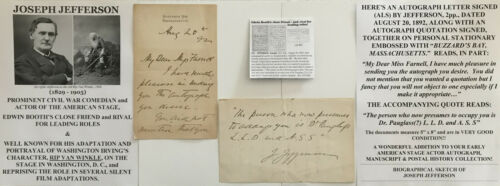 JOSEPH JEFFERSON
(1829 - 1905)
PROMINENT CIVIL WAR COMEDIAN and
ACTOR OF THE AMERICAN STAGE,
EDWIN BOOTH'S CLOSE FRIEND and RIVAL
FOR LEADING ROLES
&
WELL KNOWN FOR HIS ADAPTATION AND
PORTRAYAL OF WASHINGTON IRVING'S
CHARACTER, RIP VAN WINKLE, ON THE
STAGE IN WASHINGTON, D.C., and
REPRISING THE ROLE IN SEVERAL SILENT
FILM ADAPTATIONS.
My Dear Miss Farnell
I have much
pleasure in sending
you the autograph
you desire.
You did not
mention that you
"The person who now presumes
to occupy you is Dr
L. L. D. and A. S. S"
J Jefferson
HERE'S AN AUTOGRAPH LETTER SIGNED
(ALS) BY JEFFERSON, 2pp., DATED
AUGUST 20, 1892, ALONG WITH AN
AUTOGRAPH QUOTATION SIGNED,
TOGETHER ON PERSONAL STATIONARY
EMBOSSED WITH "BUZZARD'S BAY,
MASSACHUSETTS." READS, IN PART:
"My Dear Miss Farnell, I have much pleasure in
sending you the autograph you desire. You did
not mention that you wanted a quotation but I
fancy that you will not object to one especially if I
make it appropriate..."
THE ACCOMPANYING QUOTE READS:
"The person who now presumes to occupy you is
Dr. Pauglass(?) L. L. D. and A. S. S"
The documents measure 5" x 8" and are in VERY GOOD
CONDITION!
A WONDERFUL ADDITION TO YOUR EARLY
AMERICAN STAGE ACTOR AUTOGRAPH,
MANUSCRIPT & POSTAL HISTORY COLLECTION!
BIOGRAPHICAL SKETCH OF
JOSEPH JEFFERSON